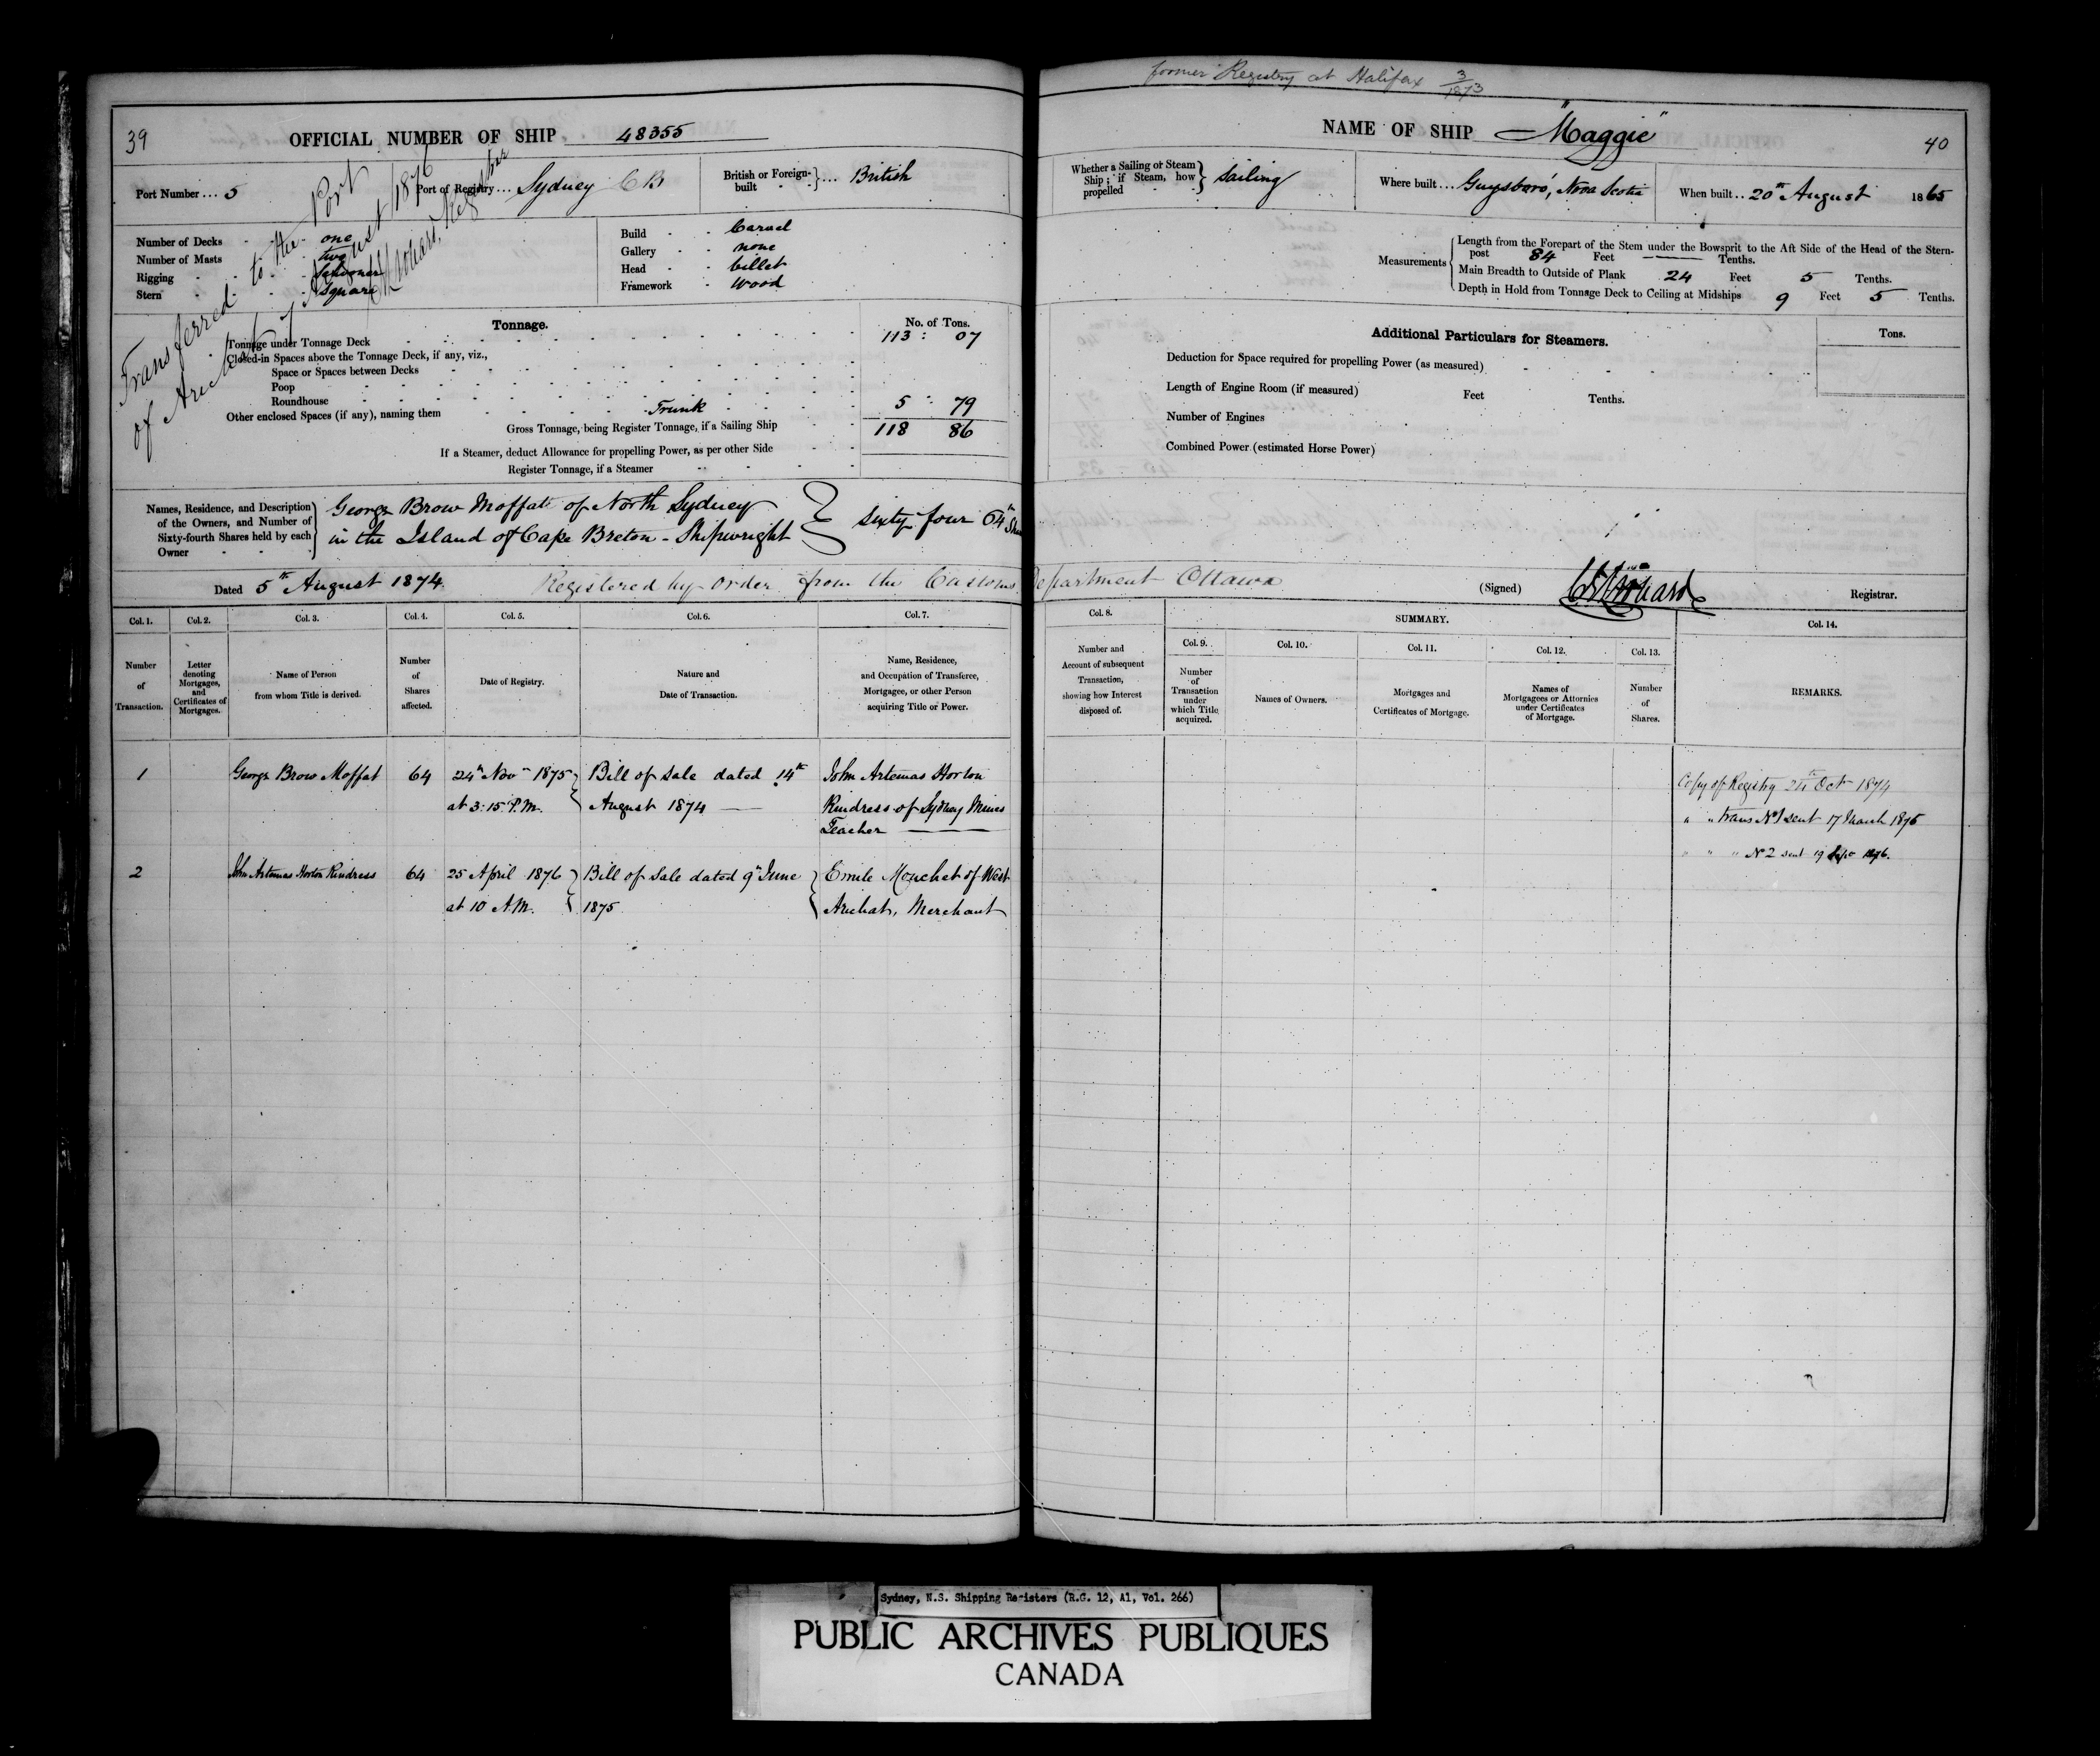 39
OFFICIAL NUMBER OF SHIP 48355
Port Number ... 5
Port of Registry ... Sydney CB
British or Foreign-built } ... British
Number of Decks - one
Number of Masts - two
Rigging - Schooner
Stern - Square
Build - Carvel
Gallery - none
Head - billet
Framework - Wood
Transferred to the Port
of Arichat 7 August 1876
Registrar
Tonnage. No. of Tons.
Tonnage under Tonnage Deck 113 : 07
Closed-in Spaces above the Tonnage Deck, if any, viz.,
Space or Spaces between Decks
Poop
Roundhouse
Other enclosed Spaces (if any), naming them Trunk 5 : 79
Gross Tonnage, being Register Tonnage, if a Sailing Ship 118 86
If a Steamer, deduct Allowance for propelling Power, as per other Side
Register Tonnage, if a Steamer
Names, Residence, and Description of the Owners, and Number of Sixty-fourth Shares held by each Owner
George Brow Moffat of North Sydney
in the Island of Cape Breton - Shipwright } Sixty four 64th
Dated 5th August 1874. Registered by order from the Customs Department Ottawa
former Registry at Halifax 3/1873
NAME OF SHIP "Maggie"
40
Whether a Sailing or Steam Ship; if Steam, how propelled } Sailing
Where built ... Guysboro', Nova Scotia
When built .. 20th August 1865
Measurements
Length from the Forepart of the Stem under the Bowsprit to the Aft Side of the Head of the Stern-
post 84 Feet — Tenths.
Main Breadth to Outside of Plank 24 Feet 5 Tenths.
Depth in Hold from Tonnage Deck to Ceiling at Midships 9 Feet 5 Tenths.
Additional Particulars for Steamers. Tons.
Deduction for Space required for propelling Power (as measured)
Length of Engine Room (if measured) Feet Tenths.
Number of Engines
Combined Power (estimated Horse Power)
(Signed) Registrar.
Col. 1. Col. 2. Col. 3. Col. 4. Col. 5. Col. 6. Col. 7. Col. 8. SUMMARY. Col. 14.
Col. 9. Col. 10. Col. 11. Col. 12. Col. 13.
Number of Transaction.
Letter denoting Mortgages, and Certificates of Mortgages.
Name of Person from whom Title is derived.
Number of Shares affected.
Date of Registry.
Nature and Date of Transaction.
Name, Residence, and Occupation of Transferee, Mortgagee, or other Person acquiring Title or Power.
Number and Account of subsequent Transaction, showing how Interest disposed of.
Number of Transaction under which Title acquired.
Names of Owners.
Mortgages and Certificates of Mortgage.
Names of Mortgagees or Attornies under Certificates of Mortgage.
Number of Shares.
REMARKS.
1 George Brow Moffat 64 24th Nov 1875 Bill of Sale dated 14th John Artemas Horton
at 3:15 P.M. August 1874 — Kindress of Sydney Mines
Teacher
2 John Artemas Horton Kindress 64 25 April 1876 Bill of Sale dated 9th June Emile Mouchet of West
at 10 A.M. 1875 Arichat, Merchant
Copy of Registry 24th Oct 1874
" " Trans No 1 sent 17 March 1876
" " " No 2 sent 19 Sept 1876.
Sydney, N.S. Shipping Registers (R.G. 12, A1, Vol. 266)
PUBLIC ARCHIVES PUBLIQUES
CANADA